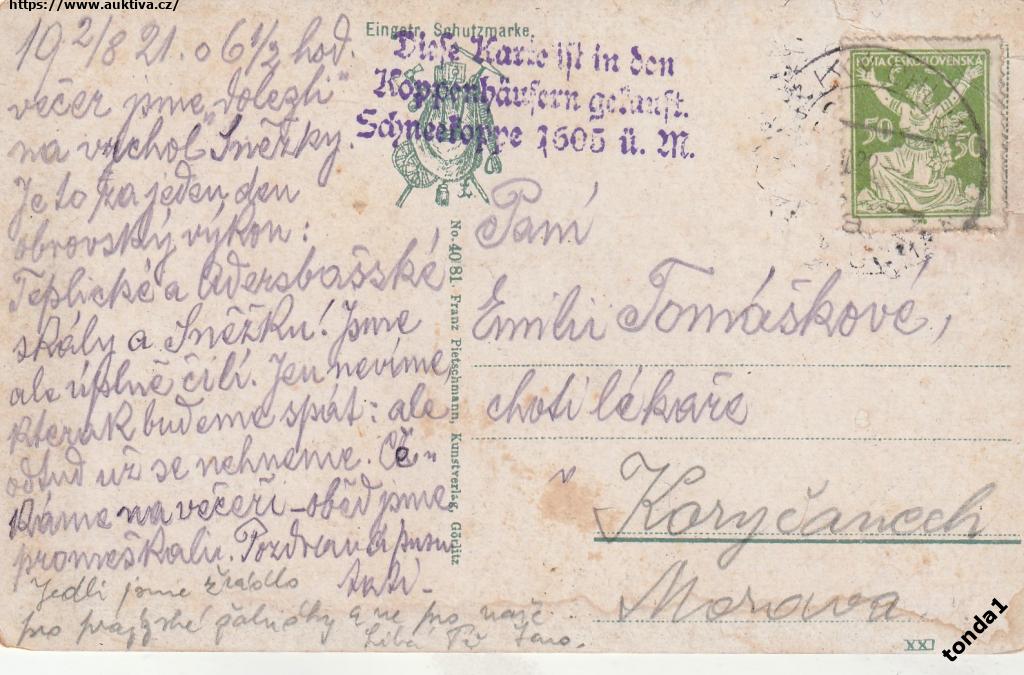 https://www.auktiva.cz/
19 2/8 21. o 6 1/2 hod.
večer jsme „dolezli"
na vrchol Sněžky.
Je to za jeden den
obrovský výkon:
Teplické a Adersbašské
skály a Sněžku! Jsme
ale úplně čilí. Jen nevíme,
kterak budeme spát: ale
odtud už se nehneme. Če-
káme na večeři – oběd jsme
promeškali. Pozdrav a
Jedli jsme žrádlo
pro pražské a ne pro naše
Eingetr. Schutzmarke.
Diese Karte ist in den
Koppenhäusern gekauft.
Schneekoppe 1605 ü. M.
No. 4081. Franz Pietschmann, Kunstverlag, Görlitz
POŠTA ČESKOSLOVENSKÁ
50 50
Paní
Emilii Tomáškové,
choti lékaře
v
Koryčanech
Morava.
XXI
tonda1